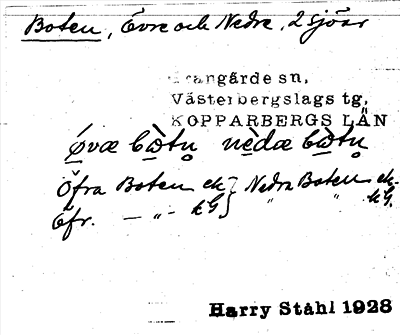 Boten, Övre och Nedre, 2 sjöar
Grangärde sn,
Västerbergslags tg,
KOPPARBERGS LÄN
ø̣væ bω̣tu̥ nèdæ bω̣tu̥
Öfra Boten ek } Nedra Boten ek.
Öfr. — „ - kG } „ „ kG.
Harry Ståhl 1928